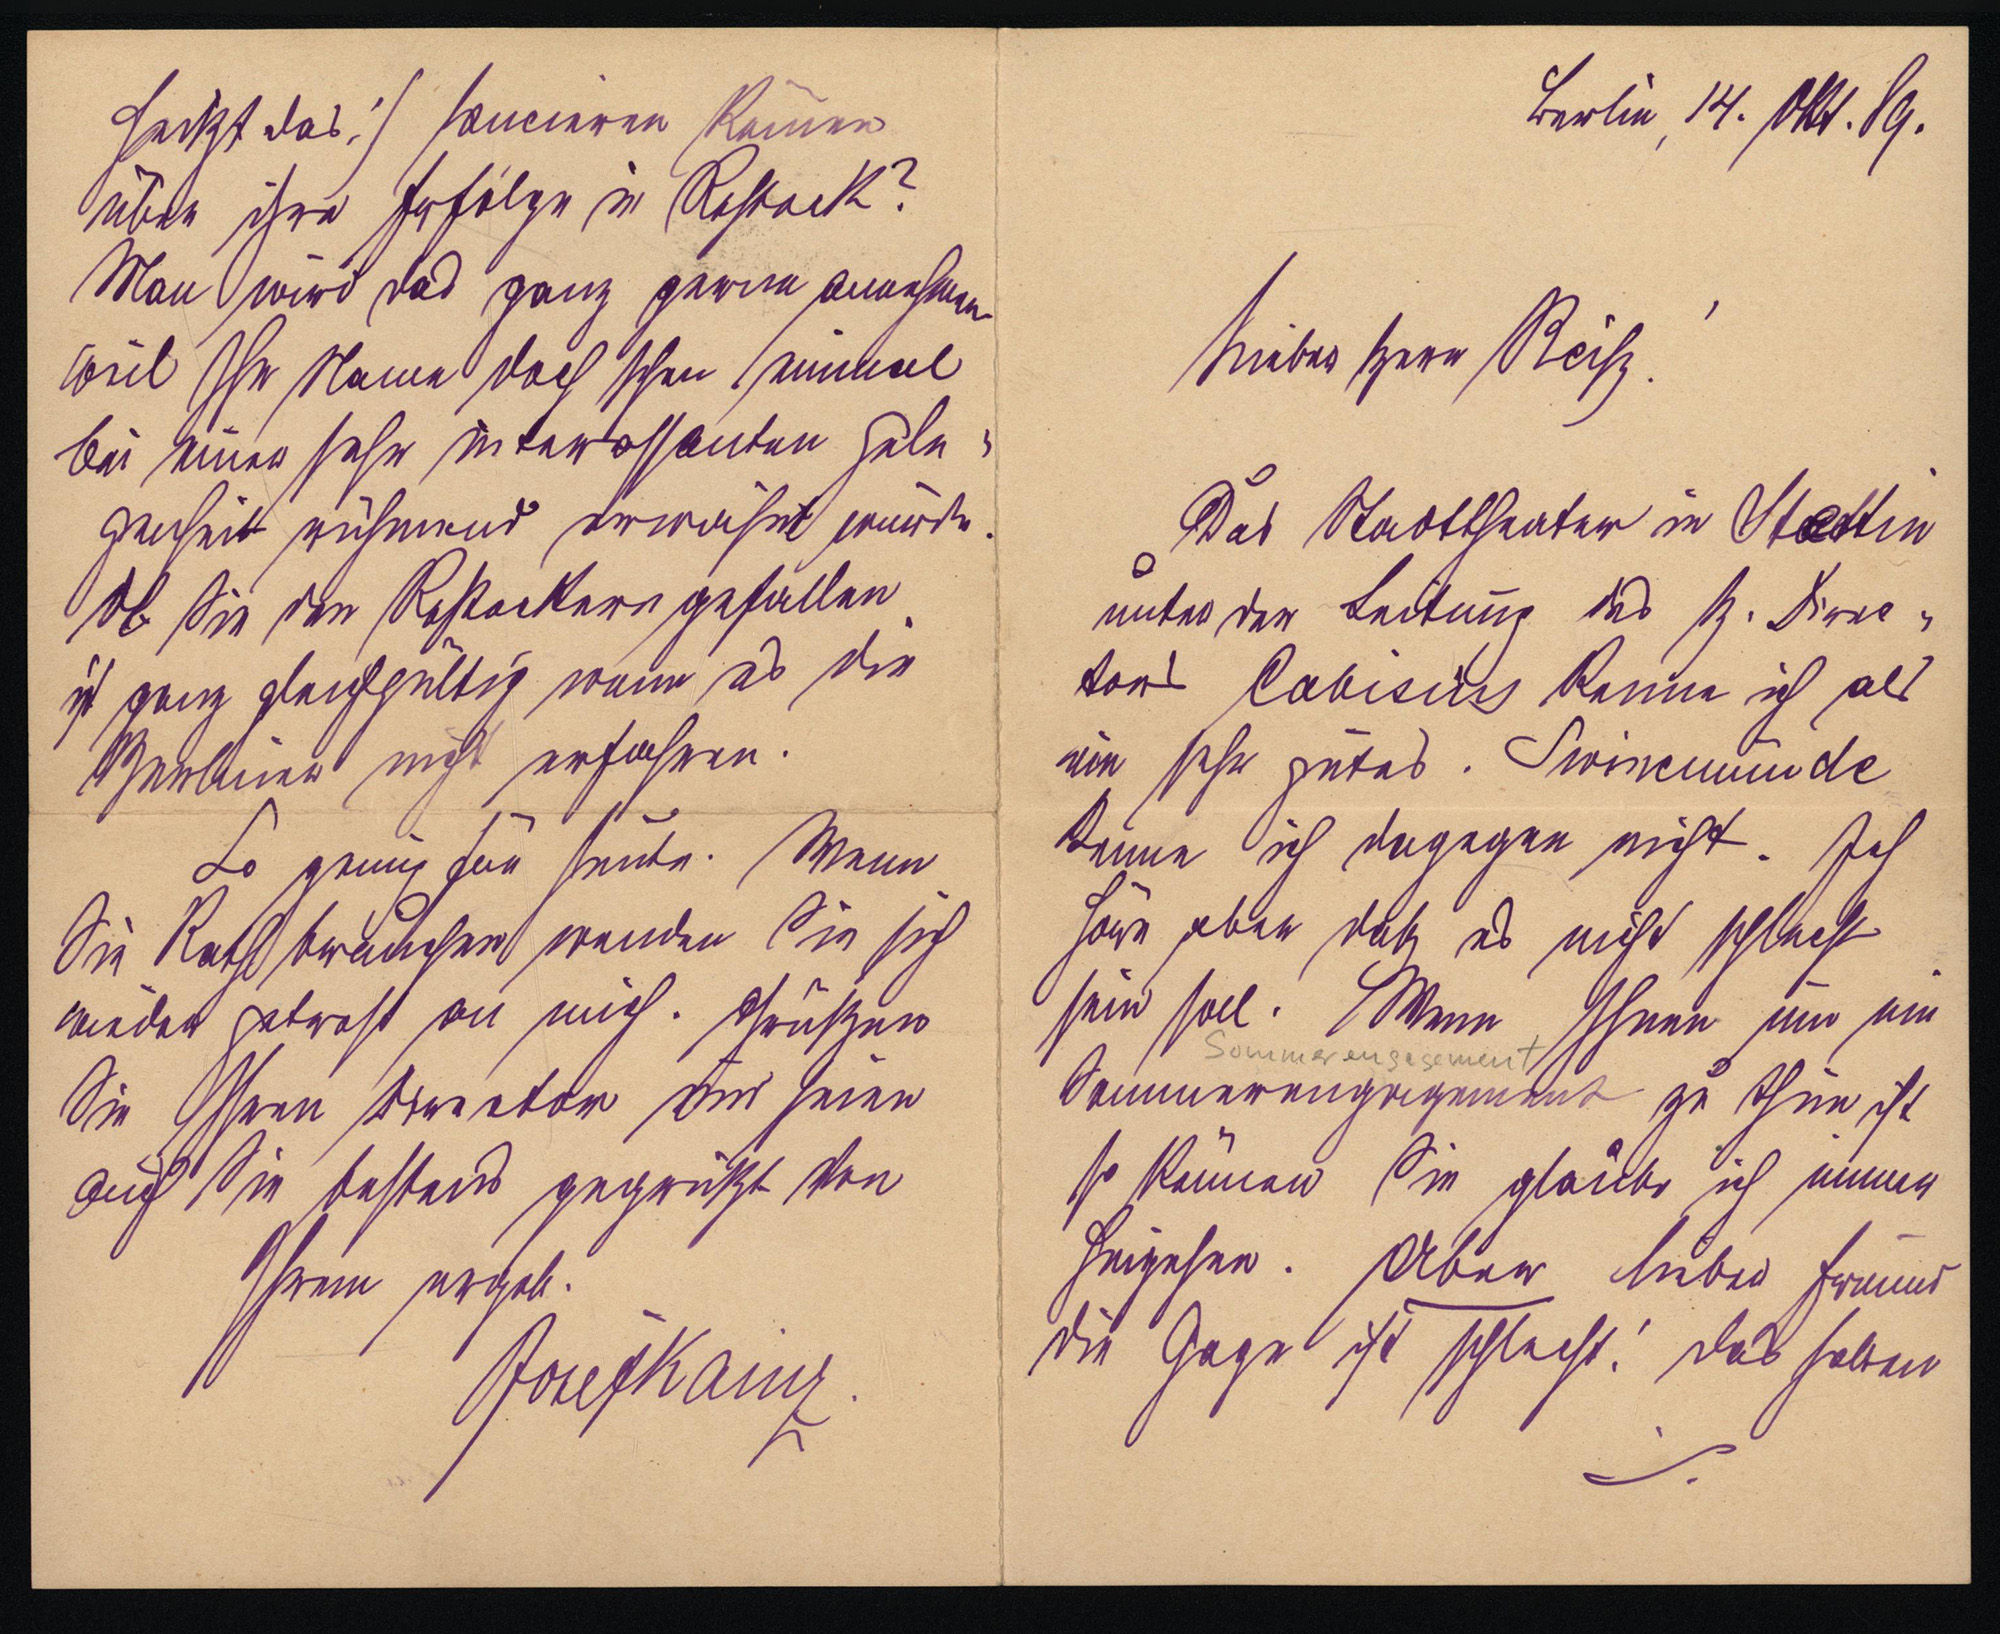 Berlin, 14. Okt. 89.
Lieber Herr Reiß!
Das Stadttheater in Stettin
unter der Leitung des H. Direc-
tors Cabisius kenne ich als
ein sehr gutes. Swinemünde
kenne ich dagegen nicht. Ich
höre aber daß es nicht schlecht
sein soll. Wenn Ihnen um ein
Sommerengagement
Sommerengagement zu thun ist
so können Sie glaube ich immer
hingehen. Aber lieber Freund
die Gage ist schlecht! Das halten
heißt das!) lancieren können
über ihre Erfolge in Rostock?
Man wird das ganz gerne annehmen
weil Ihr Name doch schon einmal
bei einer sehr interessanten Gele-
genheit rühmend erwähnt wurde.
Ob Sie den Rostockern gefallen
ist ganz gleichgültig wenn es die
Berliner nicht erfahren.
So genug für heute. Wenn
Sie Rath brauchen wenden Sie sich
wieder getrost an mich. Grüßen
Sie Ihren Director und seien
auch Sie bestens gegrüßt von
Ihrem ergeb.
Josef Kainz.